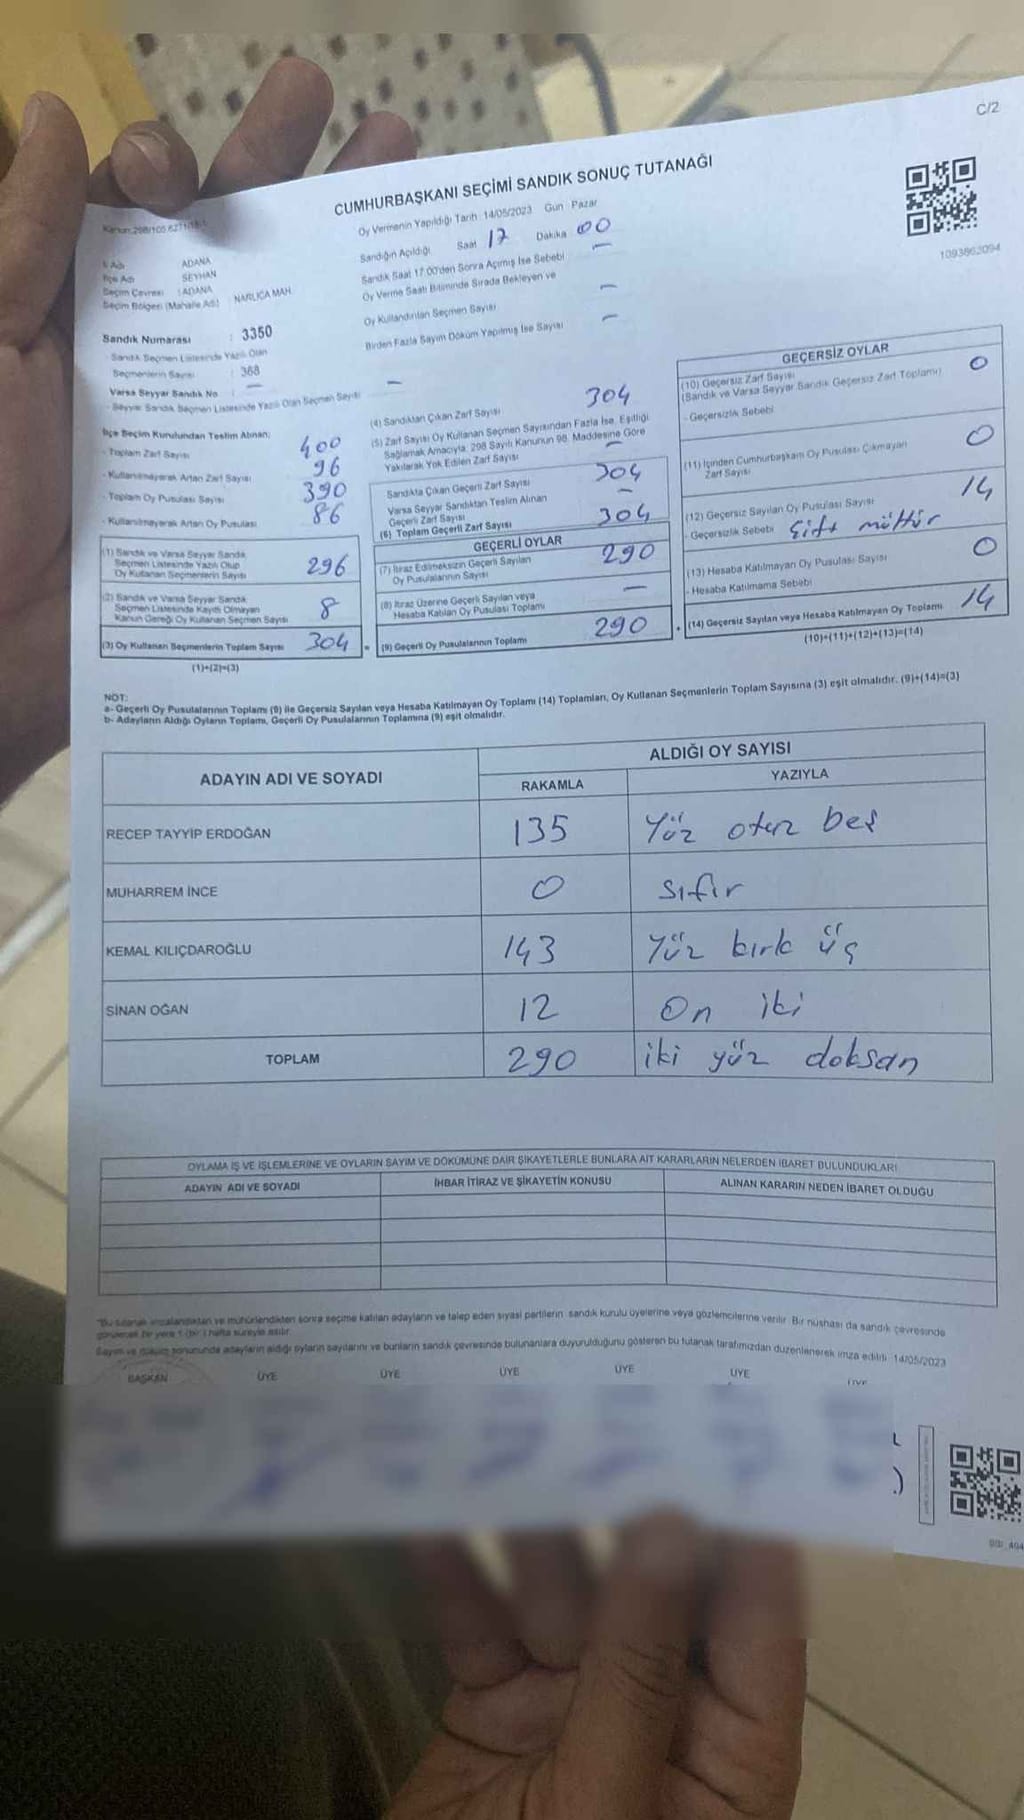 C/2
CUMHURBAŞKANI SEÇİMİ SANDIK SONUÇ TUTANAĞI
1093862094
Oy Vermenin Yapıldığı Tarih 14/05/2023 Gün : Pazar
Sandığın Açıldığı Saat 17 Dakika 00
Sandık Saat 17.00'den Sonra Açılmış İse Sebebi —
Oy Verme Saati Bitiminde Sırada Bekleyen ve
Oy Kullandırılan Seçmen Sayısı —
Birden Fazla Sayım Döküm Yapılmış İse Sayısı —
İl Adı ADANA
İlçe Adı SEYHAN
Seçim Çevresi : ADANA
Seçim Bölgesi (Mahalle Adı) : NARLICA MAH.
Sandık Numarası : 3350
- Sandık Seçmen Listesinde Yazılı Olan
Seçmenlerin Sayısı : 368
Varsa Seyyar Sandık No —
- Seyyar Sandık Seçmen Listesinde Yazılı Olan Seçmen Sayısı —
İlçe Seçim Kurulundan Teslim Alınan;
- Toplam Zarf Sayısı 400
- Kullanılmayarak Artan Zarf Sayısı 96
- Toplam Oy Pusulası Sayısı 390
- Kullanılmayarak Artan Oy Pusulası 86
(1) Sandık ve Varsa Seyyar Sandık
Seçmen Listesinde Yazılı Olup
Oy Kullanan Seçmenlerin Sayısı 296
(2) Sandık ve Varsa Seyyar Sandık
Seçmen Listesinde Kayıtlı Olmayan
Kanun Gereği Oy Kullanan Seçmen Sayısı 8
(3) Oy Kullanan Seçmenlerin Toplam Sayısı 304
(1)+(2)=(3)
=
(4) Sandıktan Çıkan Zarf Sayısı 304
(5) Zarf Sayısı Oy Kullanan Seçmen Sayısından Fazla İse, Eşitliği
Sağlamak Amacıyla, 298 Sayılı Kanunun 98. Maddesine Göre
Yakılarak Yok Edilen Zarf Sayısı —
Sandıkta Çıkan Geçerli Zarf Sayısı 304
Varsa Seyyar Sandıktan Teslim Alınan
Geçerli Zarf Sayısı —
(6) Toplam Geçerli Zarf Sayısı 304
GEÇERLİ OYLAR
(7) İtiraz Edilmeksizin Geçerli Sayılan
Oy Pusulalarının Sayısı 290
(8) İtiraz Üzerine Geçerli Sayılan veya
Hesaba Katılan Oy Pusulası Toplamı —
(9) Geçerli Oy Pusulalarının Toplamı 290
+
GEÇERSİZ OYLAR
(10) Geçersiz Zarf Sayısı
(Sandık ve Varsa Seyyar Sandık Geçersiz Zarf Toplamı) 0
- Geçersizlik Sebebi
(11) İçinden Cumhurbaşkanı Oy Pusulası Çıkmayan
Zarf Sayısı 0
(12) Geçersiz Sayılan Oy Pusulası Sayısı 14
- Geçersizlik Sebebi Çift mühür
(13) Hesaba Katılmayan Oy Pusulası Sayısı 0
- Hesaba Katılmama Sebebi
(14) Geçersiz Sayılan veya Hesaba Katılmayan Oy Toplamı 14
(10)+(11)+(12)+(13)=(14)
NOT:
a- Geçerli Oy Pusulalarının Toplamı (9) ile Geçersiz Sayılan veya Hesaba Katılmayan Oy Toplamı (14) Toplamları, Oy Kullanan Seçmenlerin Toplam Sayısına (3) eşit olmalıdır. (9)+(14)=(3)
b- Adayların Aldığı Oyların Toplamı, Geçerli Oy Pusulalarının Toplamına (9) eşit olmalıdır.
ADAYIN ADI VE SOYADI ALDIĞI OY SAYISI
RAKAMLA YAZIYLA
RECEP TAYYİP ERDOĞAN 135 Yüz otuz beş
MUHARREM İNCE 0 Sıfır
KEMAL KILIÇDAROĞLU 143 Yüz kırk üç
SİNAN OĞAN 12 On iki
TOPLAM 290 iki yüz doksan
OYLAMA İŞ VE İŞLEMLERİNE VE OYLARIN SAYIM VE DÖKÜMÜNE DAİR ŞİKAYETLERLE BUNLARA AİT KARARLARIN NELERDEN İBARET BULUNDUKLARI
ADAYIN ADI VE SOYADI İHBAR İTİRAZ VE ŞİKAYETİN KONUSU ALINAN KARARIN NEDEN İBARET OLDUĞU
*Bu tutanak imzalandıktan ve mühürlendikten sonra seçime katılan adayların ve talep eden siyasi partilerin sandık kurulu üyelerine veya gözlemcilerine verilir. Bir nüshası da sandık çevresinde
görülecek bir yere 1 (bir) hafta süreyle asılır.
Sayım ve döküm sonucunda adayların aldığı oyların sayılarını ve bunların sandık çevresinde bulunanlara duyurulduğunu gösteren bu tutanak tarafımızdan düzenlenerek imza edildi. 14/05/2023
BAŞKAN ÜYE ÜYE ÜYE ÜYE ÜYE ÜYE